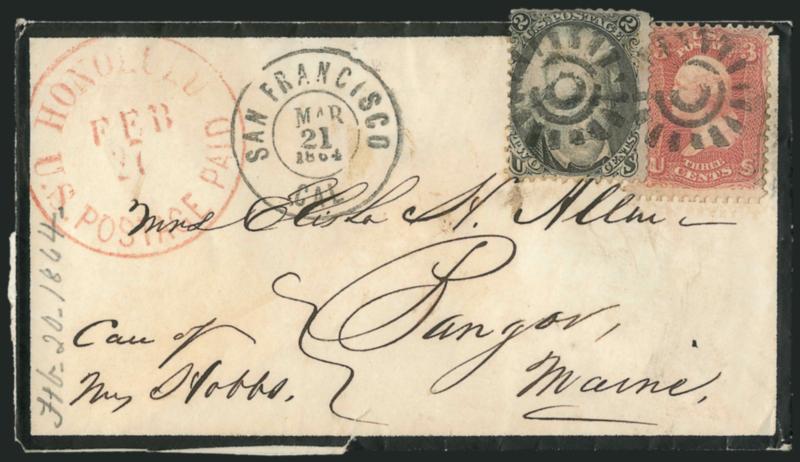 HONOLULU
FEB
21
U.S. POSTAGE PAID
SAN FRANCISCO
MAR
21
1864
CAL
2 U.S. POSTAGE 2
U TWO CENTS S
3
U THREE S
CENTS
Mrs Elisha H. Allen
Care of
Mrs Hobbs.
Bangor,
Maine.
Feb-20-1864-